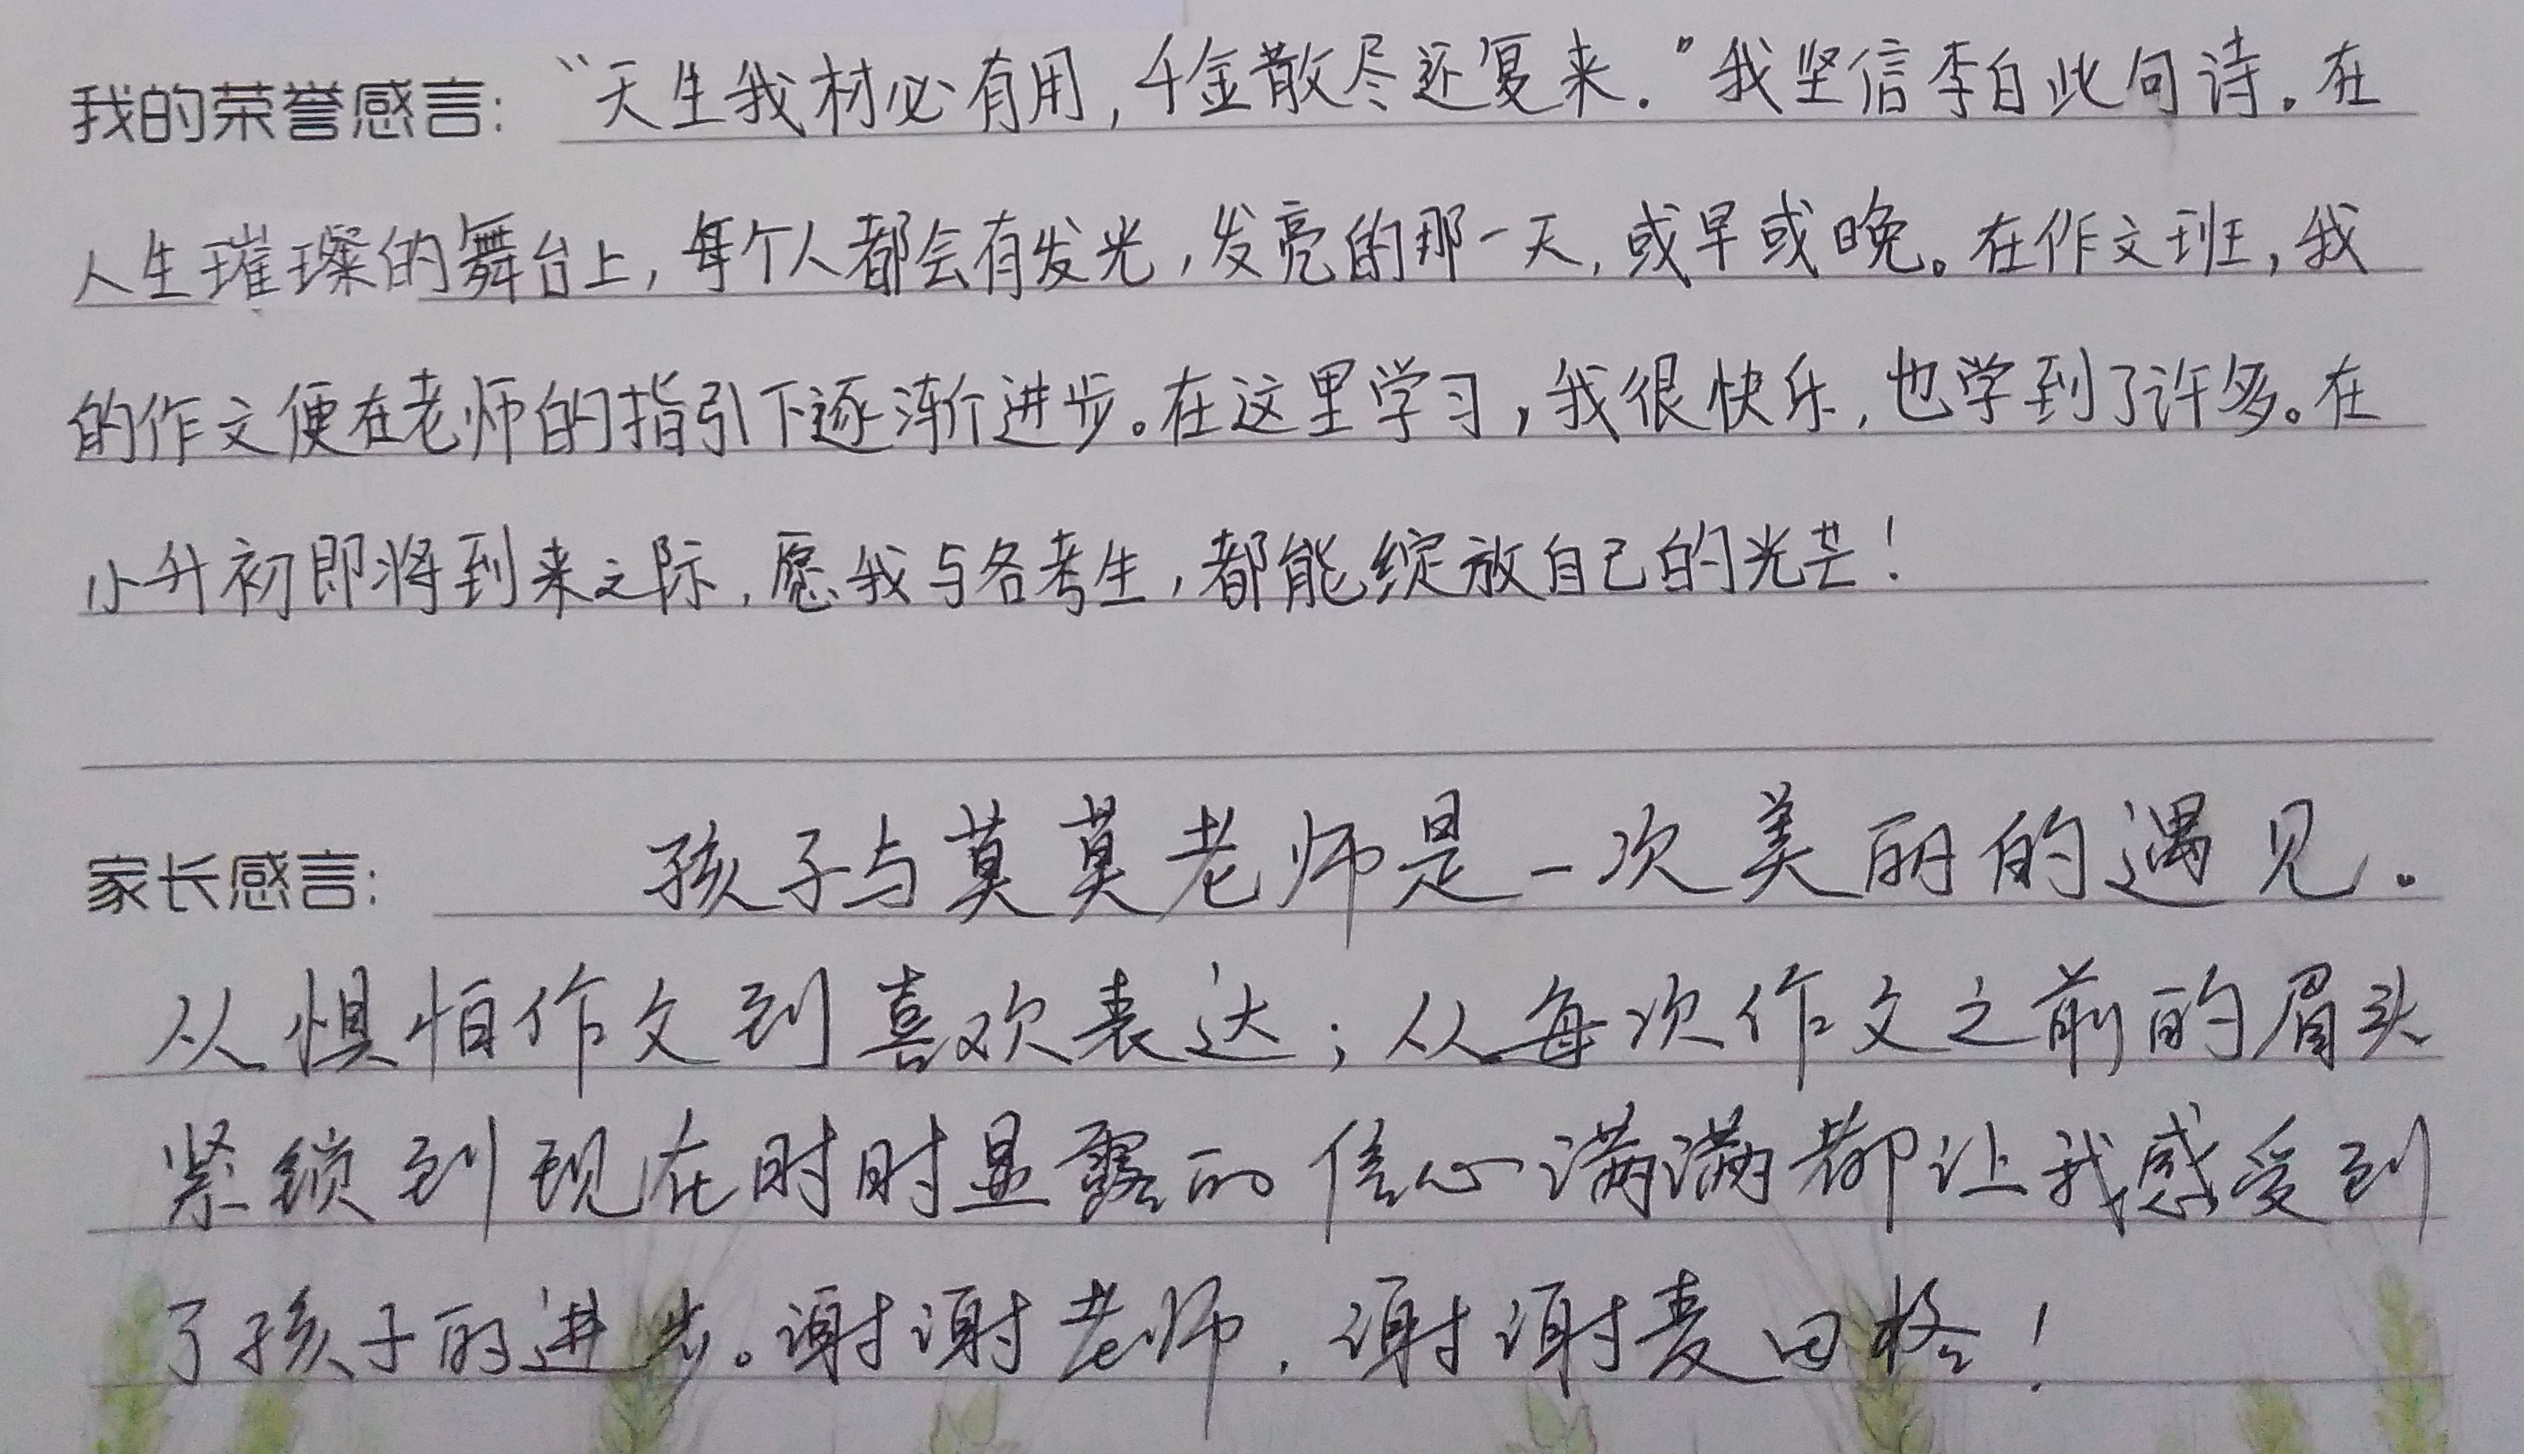 我的荣誉感言：“天生我材必有用，千金散尽还复来.”我坚信李白此句诗。在
人生璀璨的舞台上，每个人都会有发光，发亮的那一天，或早或晚。在作文班，我
的作文便在老师的指引下逐渐进步。在这里学习，我很快乐，也学到了许多。在
小升初即将到来之际，愿我与各考生，都能绽放自己的光芒！
家长感言：孩子与莫莫老师是一次美丽的遇见.
从惧怕作文到喜欢表达；从每次作文之前的眉头
紧锁到现在时时显露的信心满满都让我感受到
了孩子的进步。谢谢老师，谢谢麦田格！